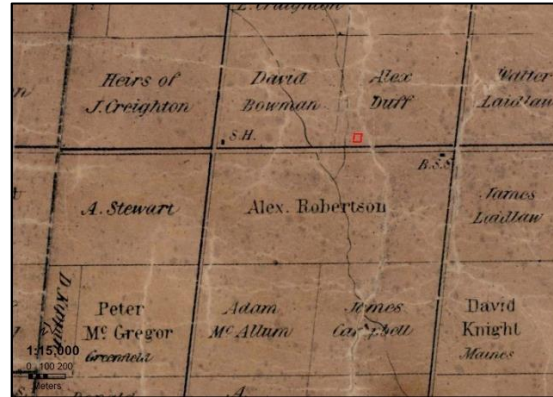 L. Creighton
Heirs of
J. Creighton
David
Bowman
Alex
Duff
Walter
Laidlaw
S.H.
B.S.S
A. Stewart
Alex. Robertson
James
Laidlaw
Peter
Mc Gregor
Greenfield
Adam
Mc Allum
James
Campbell
David
Knight
Maines
1:15,000
0 100 200
Meters